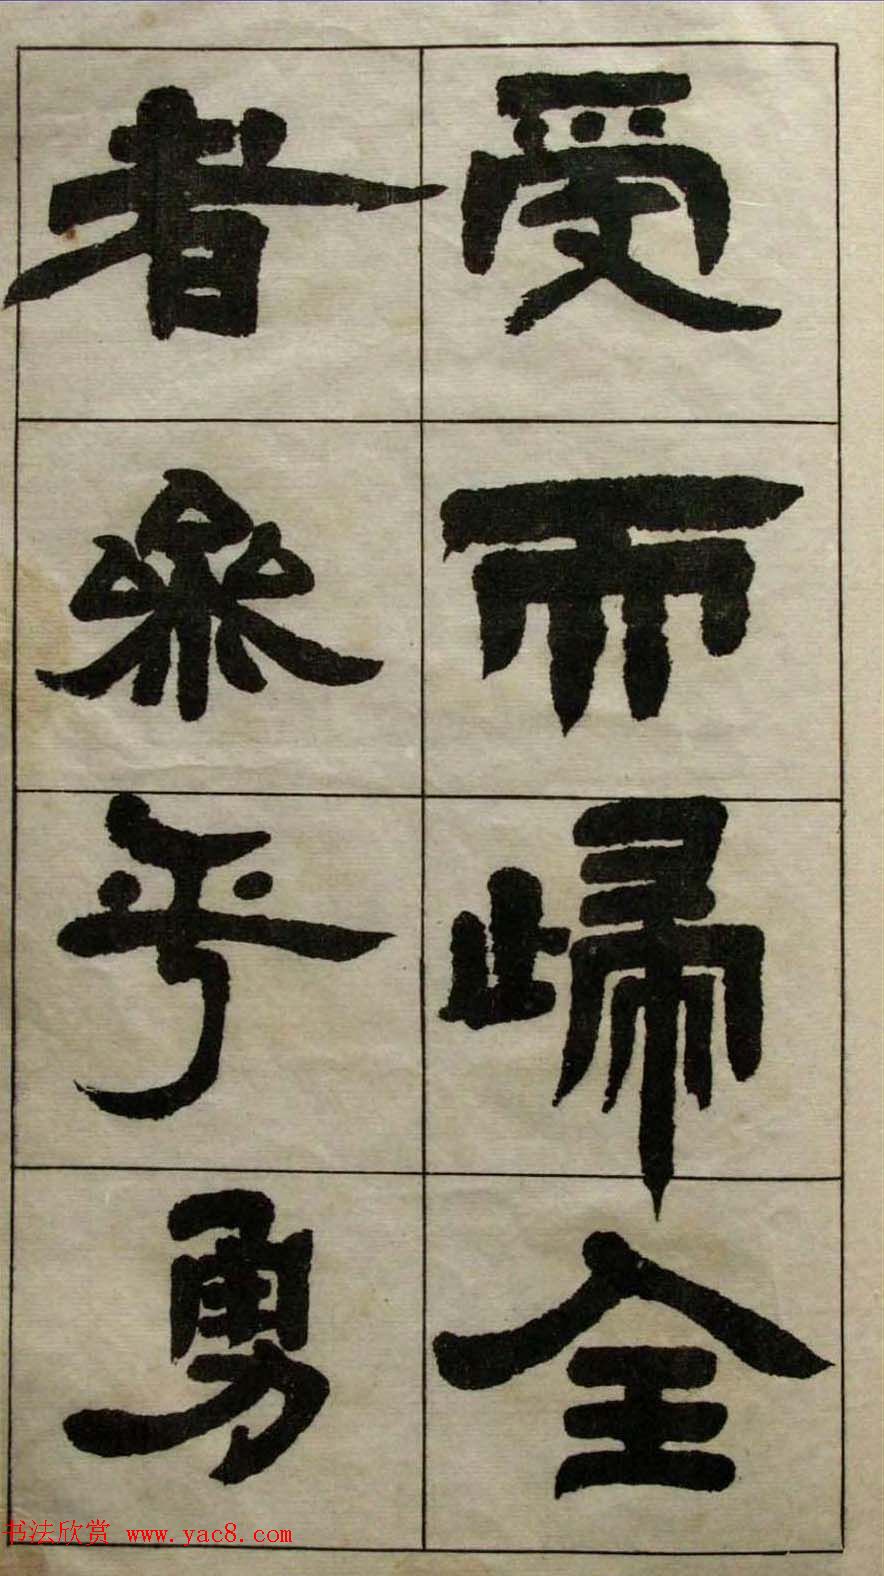 受而歸全
者參乎勇
书法欣赏 www.yac8.com